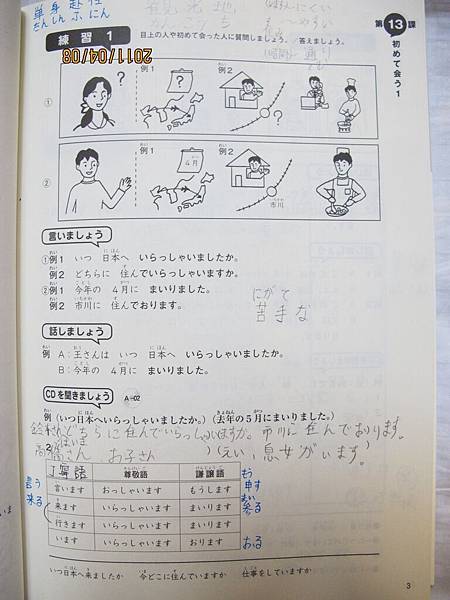 単身赴任
たんしんふにん
観光地
2011/04/08
第13課
初めて会う 1
練習1
目上の人や初めて会った人に質問しましょう。/答えましょう。
① 例1 ? 例2 ?
② 例1 4月 例2 市川
言いましょう
①例1 いつ 日本へ いらっしゃいましたか。
例2 どちらに 住んでいらっしゃいますか。
②例1 今年の 4月に まいりました。
例2 市川に 住んでおります。
にがて
苦手な
話しましょう
例 A:王さんは いつ 日本へ いらっしゃいましたか。
B:今年の 4月に まいりました。
CDを聞きましょう A-02
例(いつ日本へいらっしゃいましたか。)(去年の5月にまいりました。)
どちらに住んでいらっしゃいますか。市川に住んでおります。
2 高橋さん お子さん )(えい、息女がいます。)
丁寧語 尊敬語 謙譲語
言う 言います おっしゃいます もうします 申す
来る 来ます いらっしゃいます まいります 参る
行きます いらっしゃいます まいります
います いらっしゃいます おります おる
いつ日本へ来ましたか 今どこに住んでいますか 仕事をしていますか
3